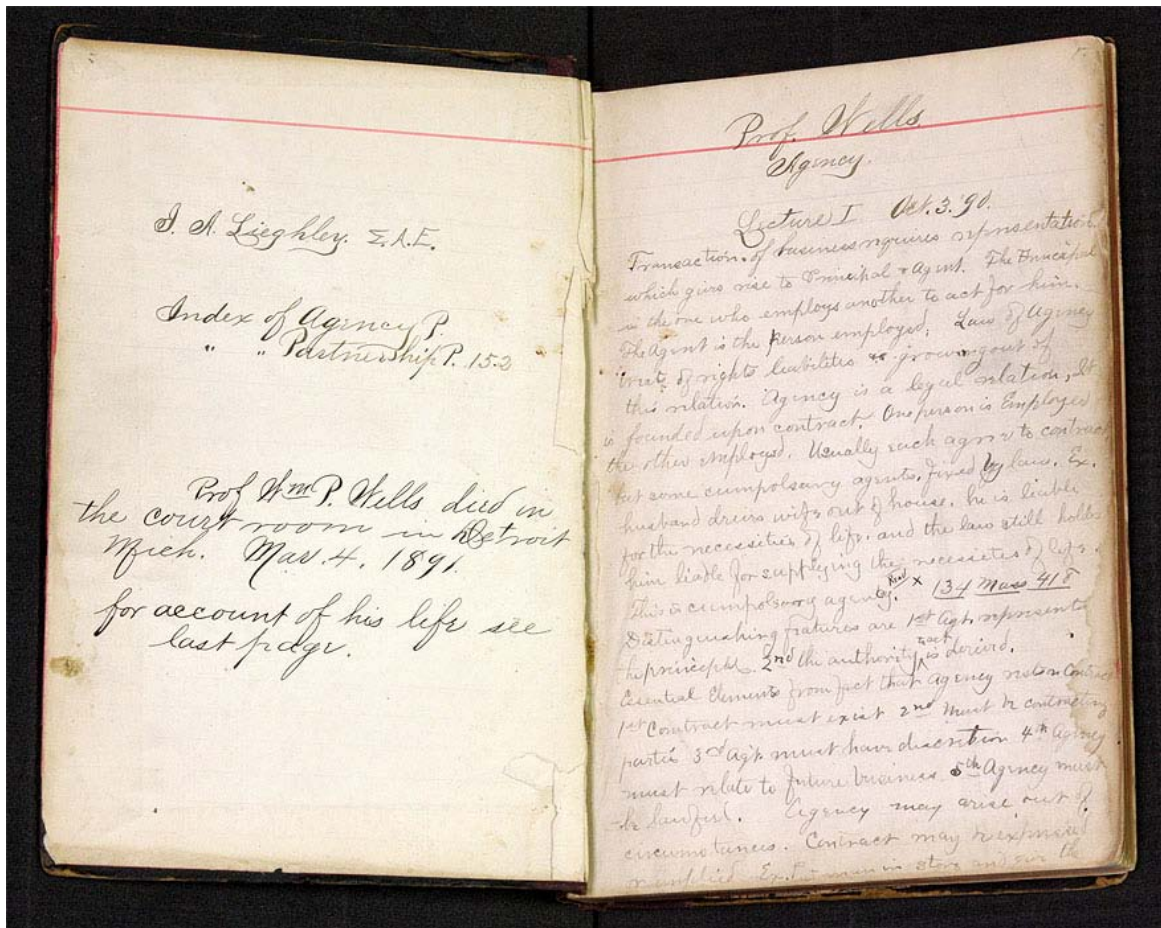 I. A. Lieghley. Σ.A.E.
Index of Agency P.
" " Partnership P. 152
Prof Wm P. Wells died in
the court room in Detroit
Mich. Mar. 4. 1891.
for account of his life see
last page.
Prof. Wells.
Agency.
Lecture I Oct. 3. '90.
Transaction of business requires representation
which gives rise to Principal & Agent. The Principal
is the one who employs another to act for him.
The Agent is the person employed; Law of Agency
treats of rights liabilities growing out of
this relation. Agency is a legal relation, It
is founded upon contract. One person is Employer
the other employed. Usually such agree to contract
but some cumpolsary agents, fixed by law. Ex.
husband drives wife out of house, he is liable
for the necessities of life, and the law still holds
him liable for supplying the necessities of life.
This is cumpolsory agency. Read x 134 Mass 418
Distinguishing features are 1st Agt. represents
he principal. 2nd the authority is derived.
Essential Elements from fact that agency rests on Contract
1st Contract must exist 2nd Must be contracting
parties 3rd Agt. must have discretion 4th Agency
must relate to future business 5th Agency must
be lawful. Agency may arise out of
circumstances. Contract may be expressed
or implied Ex. man in store and the